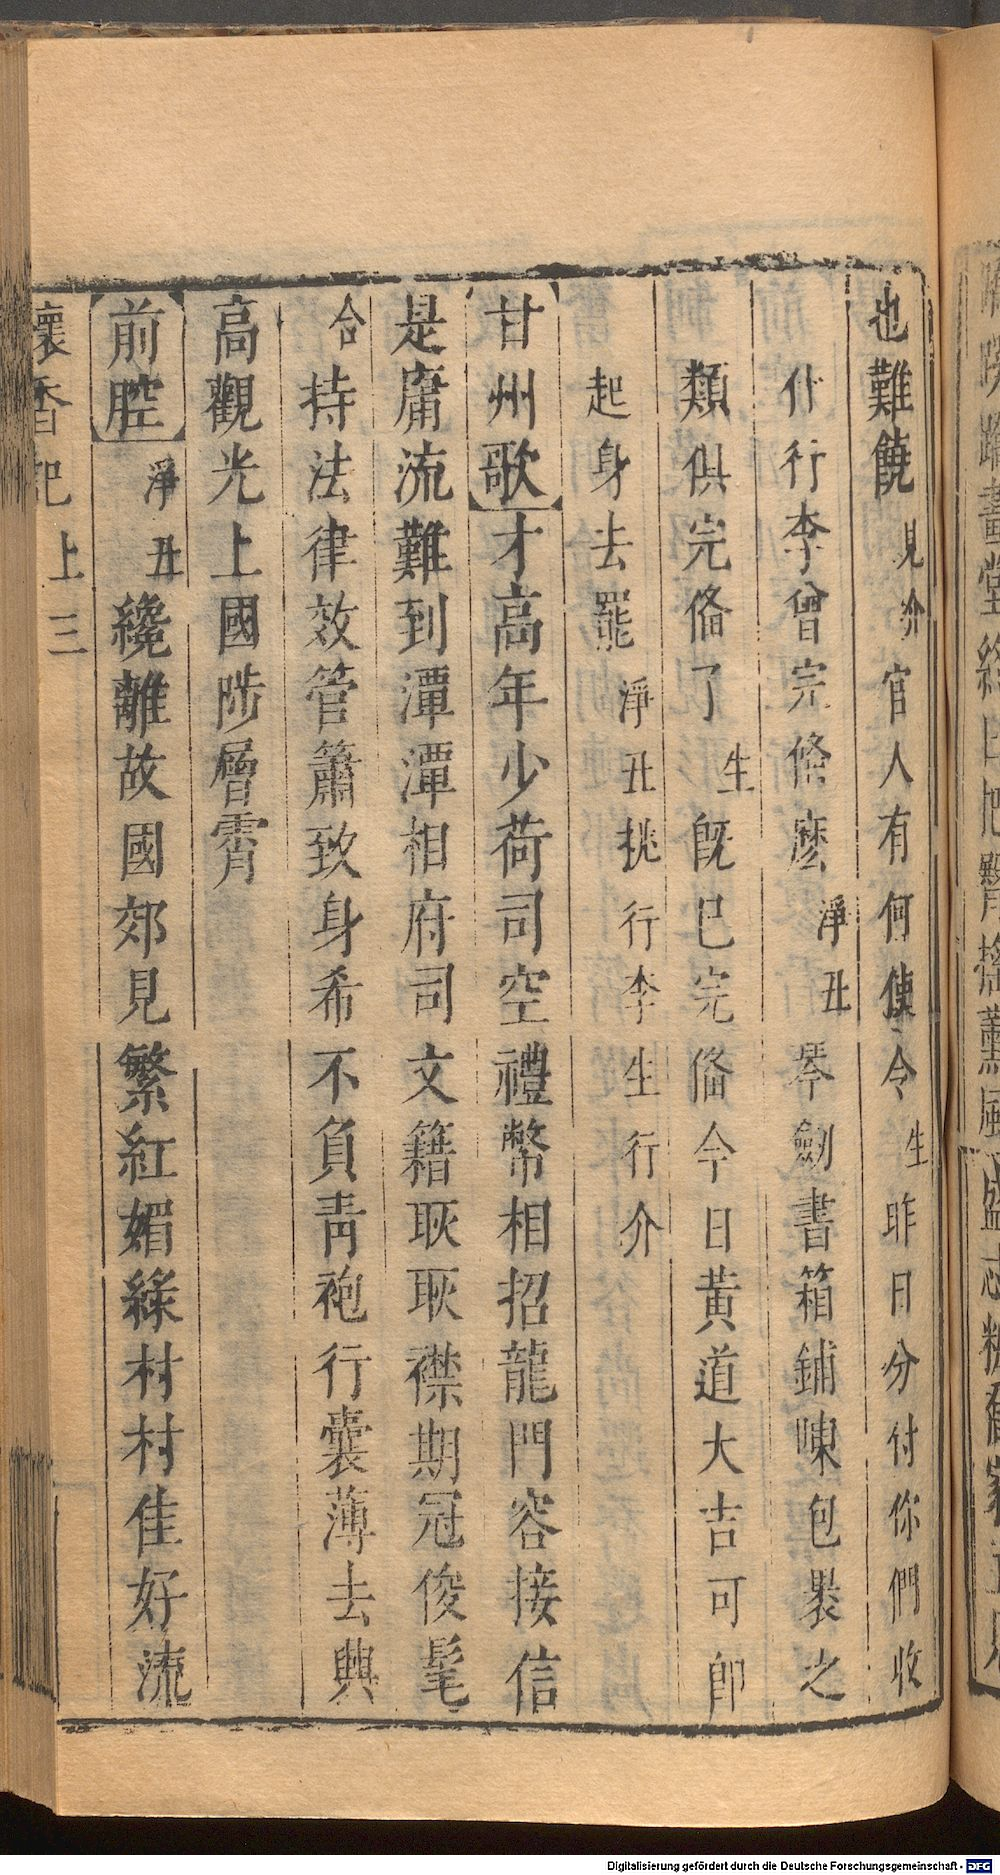 也難饒見介官人有何使令生昨日分付你們收
什行李曾完俻麽淨丑琴劍書箱鋪陳包褁之
類俱完俻了生既已完俻今日黃道大吉可卽
起身去罷淨丑挑行李生行介
甘州歌才高年少荷司空禮幣相招龍門容接信
是庸流難到潭潭相府司文籍耿耿襟期冠俊髦
合持法律效管簫致身希不負靑袍行囊薄去興
高觀光上國陟層霄
前腔淨丑纔離故國郊見繁紅媚綠村村佳好流
懷香記上三
Digitalisierung gefördert durch die Deutsche Forschungsgemeinschaft - DFG